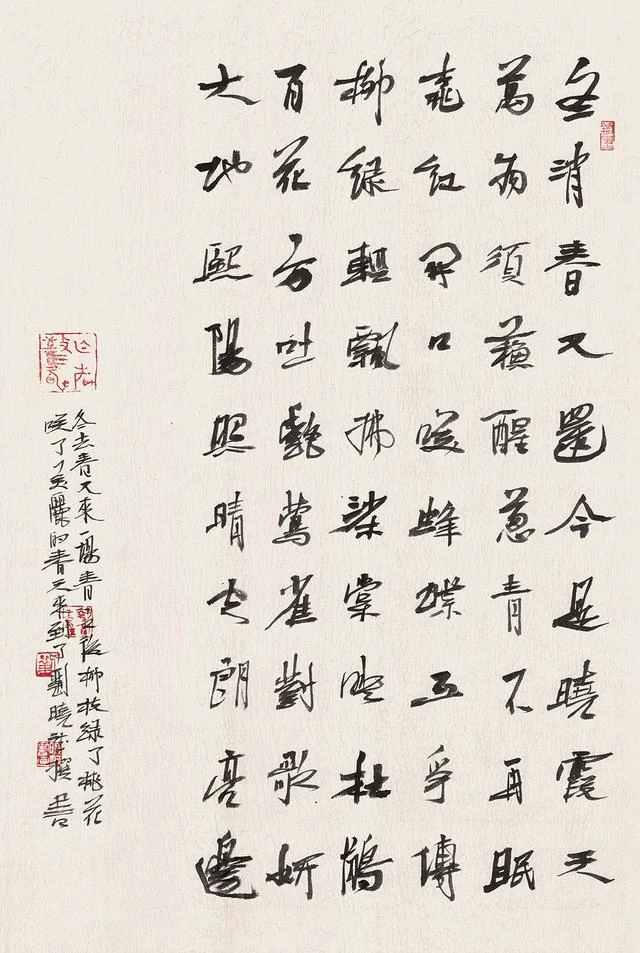 冬消春又還今是曉霞天
萬物須蘇醒蔥青不再眠
桃紅開口笑蜂蝶互爭傳
柳綠輕飄拂棠嘆杜鵑
百花方吐艷鶯雀對歌妍
大地熙陽照晴空朗亮邊
冬去春又來一場春柳枝綠了桃花
笑了美麗的春天來到了劉曉撰書